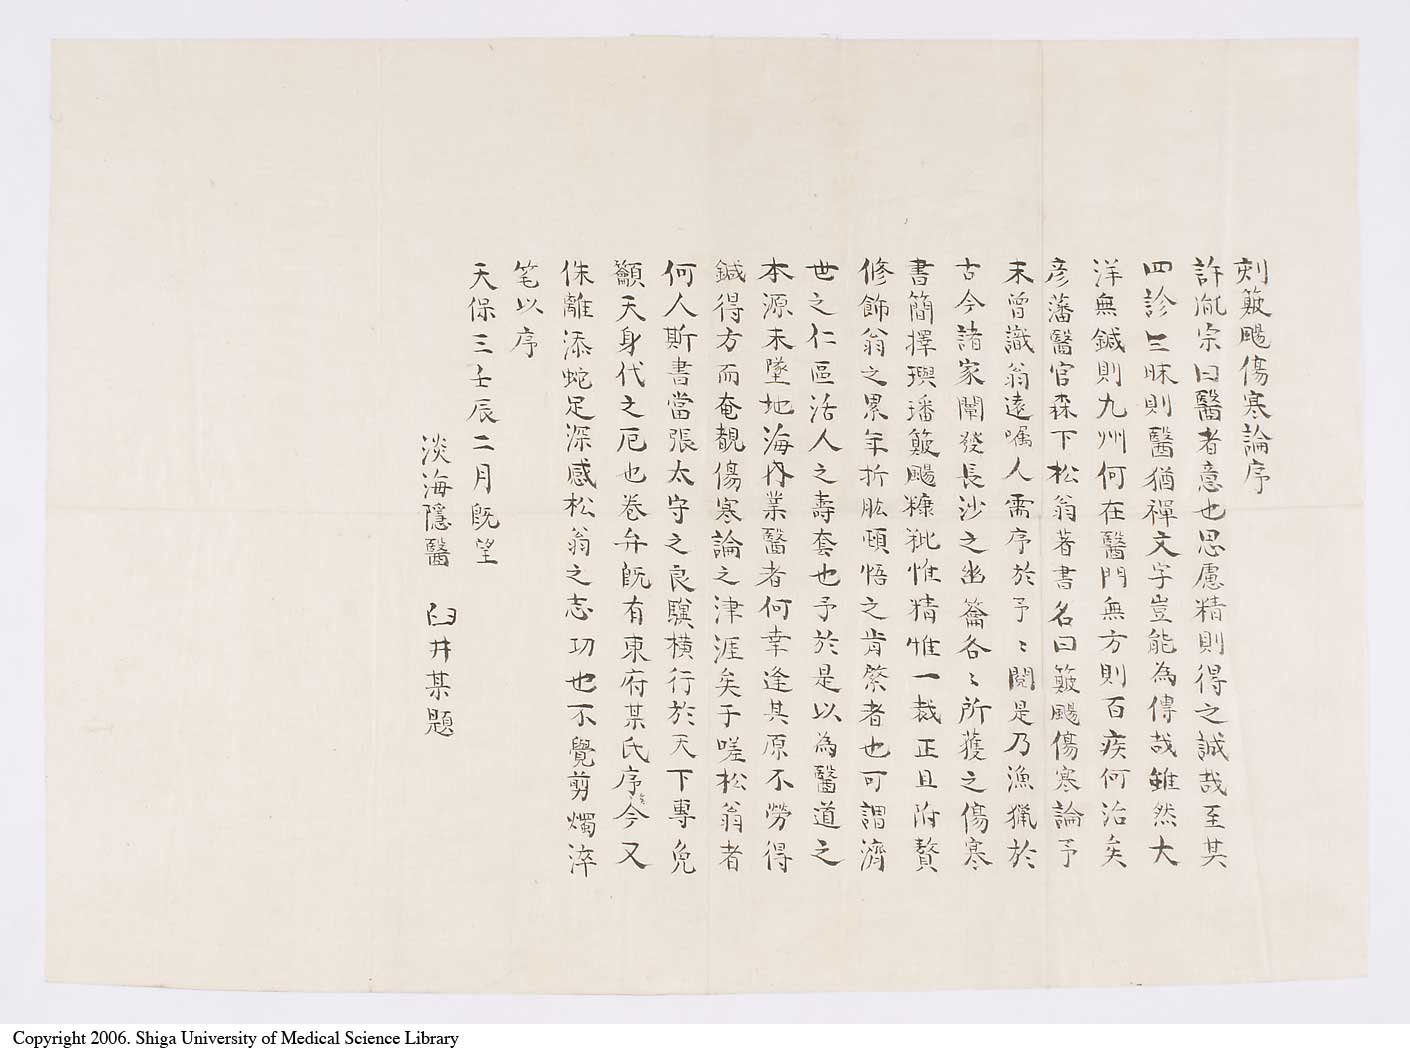 刻簸颺傷寒論序
許胤宗曰醫者意也思慮精則得之誠哉至其
四診三昧則醫猶禪文字豈能為傳哉雖然大
洋無鍼則九州何在醫門無方則百疾何治矣
彦藩醫官森下松翁著書名曰簸颺傷寒論予
未曾識翁遠嘱人需序於予〻閲是乃漁猟於
古今諸家闡發長沙之幽籥各〻所獲之傷寒
書簡擇璵璠簸颺糠粃惟精惟一裁正且附贅
修飾翁之累年折肱頓悟之肯綮者也可謂濟
世之仁區活人之壽套也予於是以為醫道之
本源未墜地海内業醫者何幸逢其原不勞得
鍼得方而奄覩傷寒論之津涯矣于嗟松翁者
何人斯書當張太守之良驥横行於天下專免
籲天身代之厄也卷弁既有東府某氏序今又
侏離添蛇足深感松翁之志功也不覺剪燭淬
笔以序
天保三壬辰二月既望
淡海隱醫 臼井某題
Copyright 2006. Shiga University of Medical Science Library